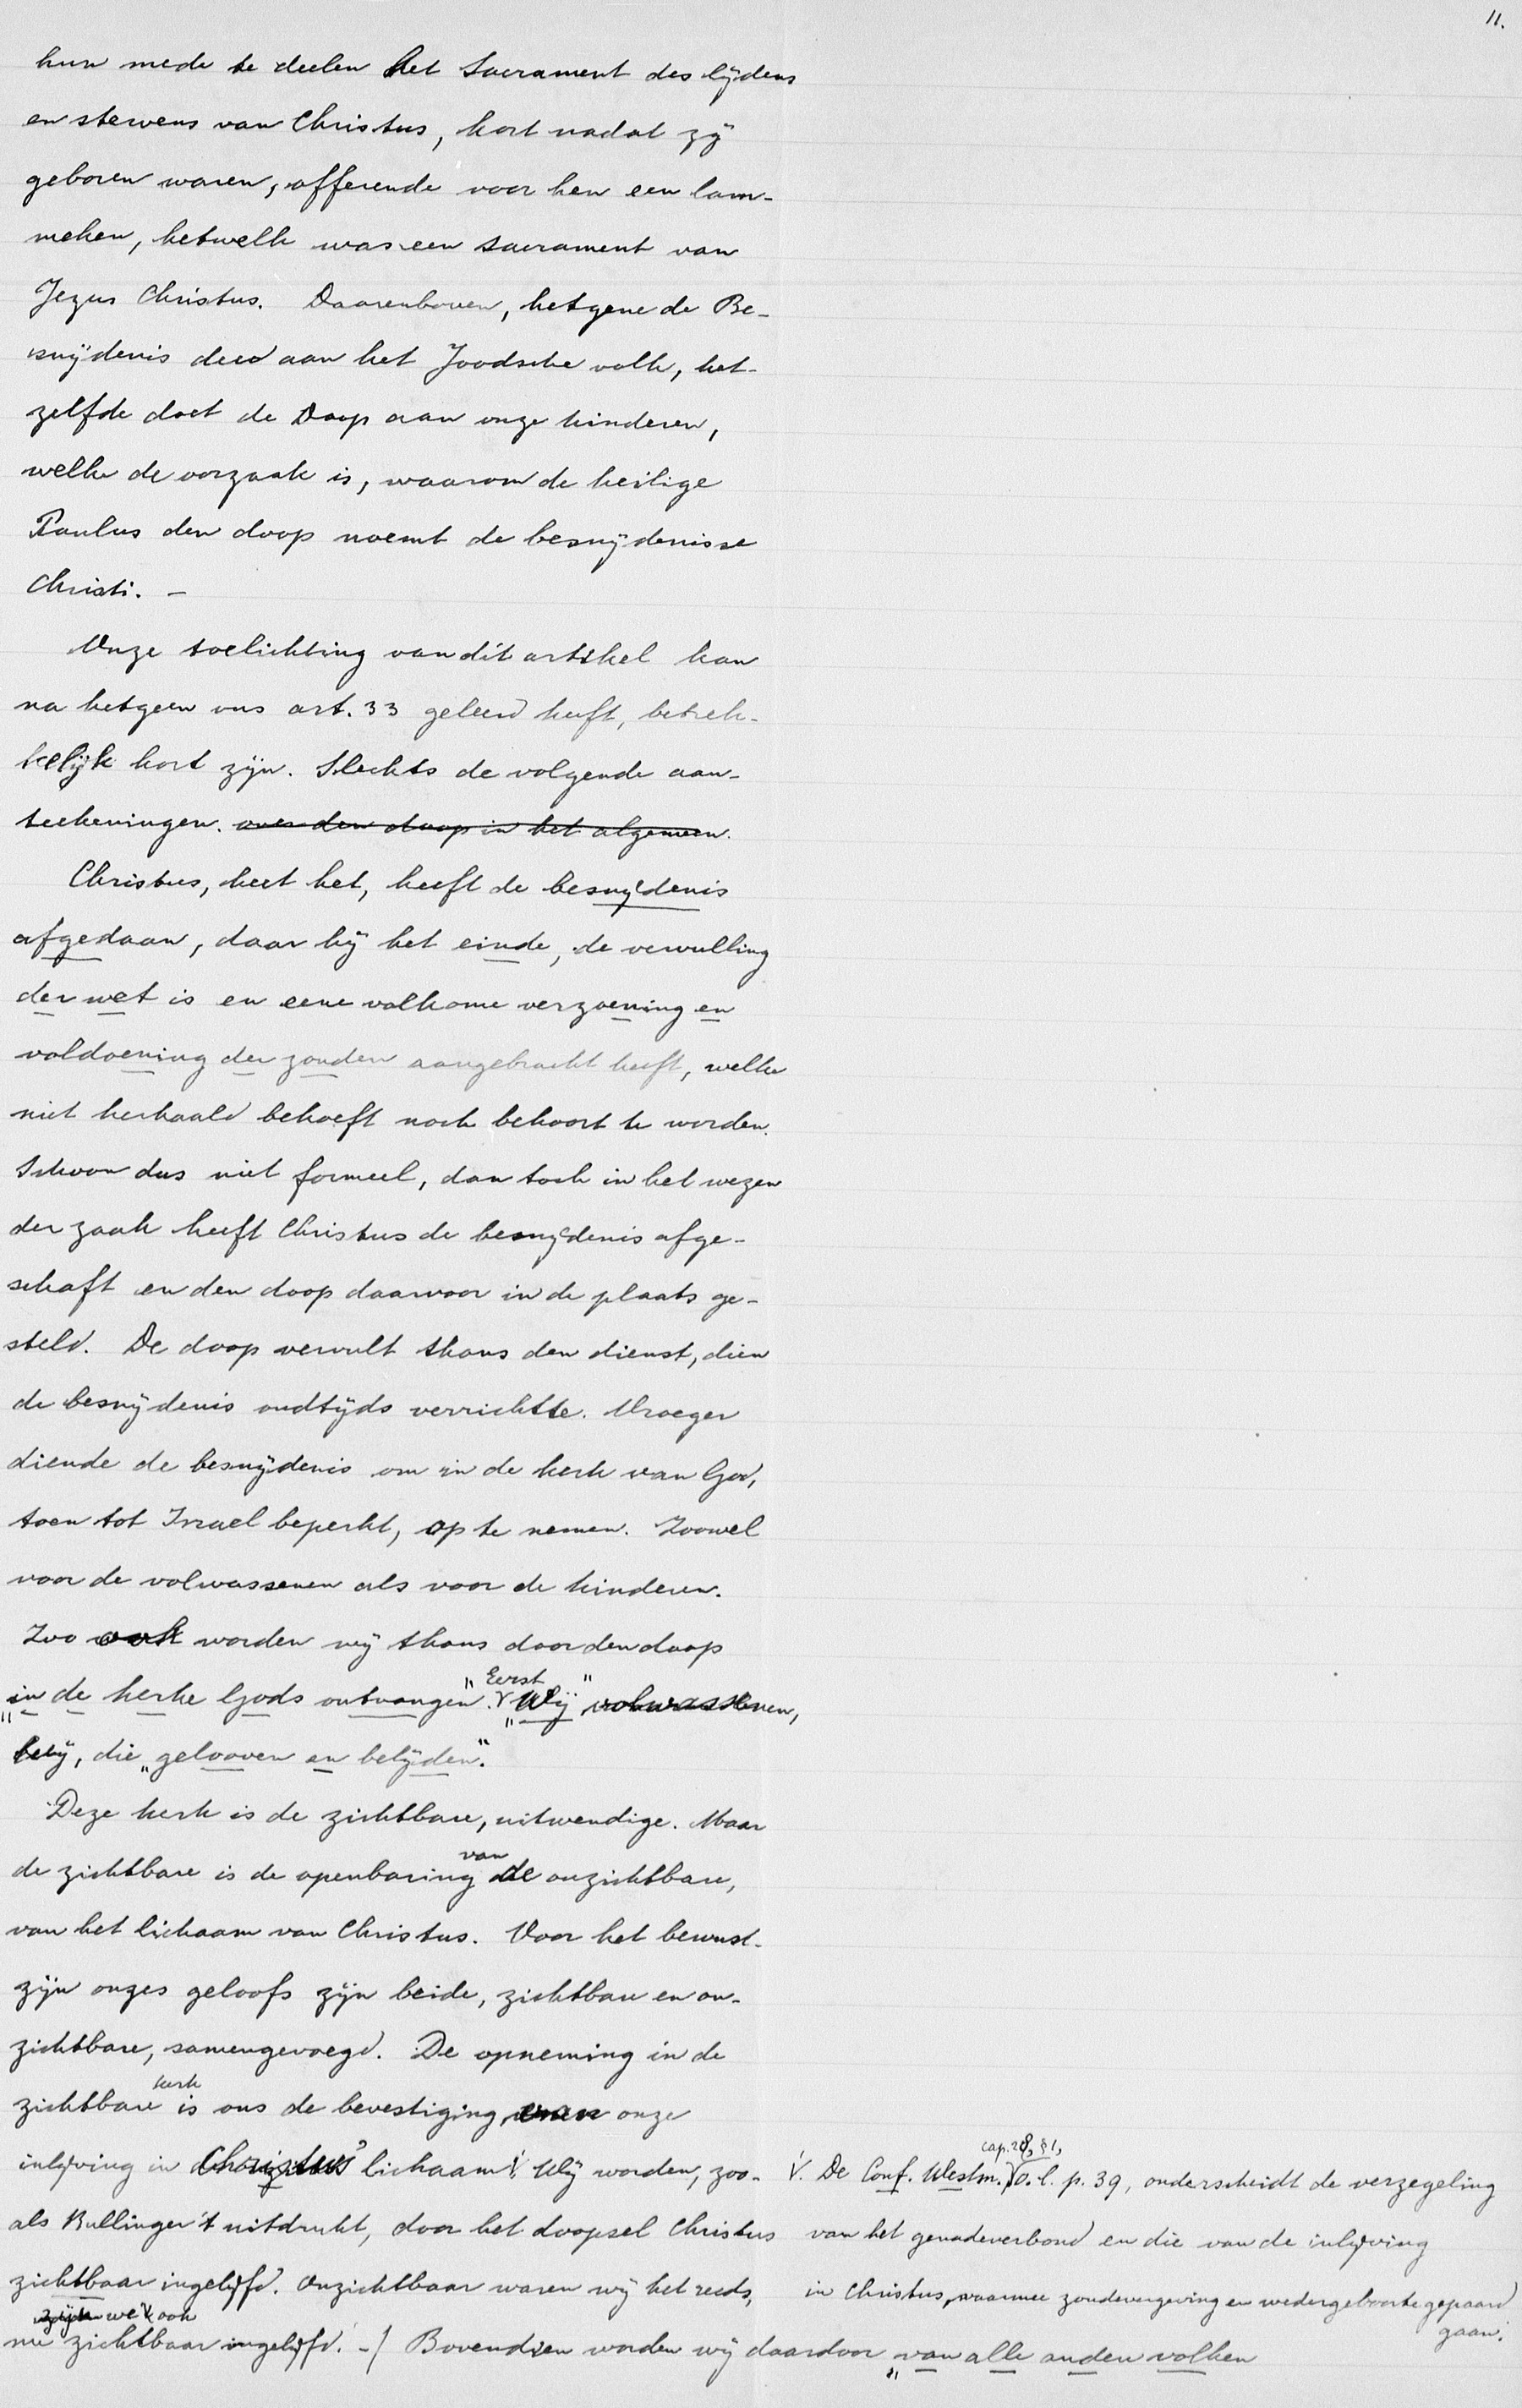 11.
hun mede te deelen het Sacrament des lijdens
en stervens van Christus, kort nadat zij
geboren waren, offerende voor hen een lam-
meken, hetwelk was een sacrament van
Jezus Christus. Daarenboven, hetgene de Be-
snijdenis deed aan het Joodsche volk, het-
zelfde doet de Doop aan onze kinderen,
welke de oorzaak is, waarom de heilige
Paulus den doop noemt de besnijdenisse
Christi. -
Onze toelichting van dit artikel kan
na hetgeen ons art. 33 geleerd heeft, betrek-
kelijk kort zijn. Slechts de volgende aan-
teekeningen. over den doop in het algemeen.
Christus, heet het, heeft de besnijdenis
afgedaan, daar hij het einde, de vervulling
der wet is en eene volkome verzoening en
voldoening der zonden aangebracht heeft, welke
niet herhaald behoeft noch behoort te worden.
Schoon dus niet formeel, dan toch in het wezen
der zaak heeft Christus de besnijdenis afge-
schaft en den doop daarvoor in de plaats ge-
steld. De doop vervult thans den dienst, dien
de besnijdenis oudtijds verrichtte. Vroeger
diende de besnijdenis om in de kerk van God,
toen tot Israel beperkt, op te nemen. Zoowel
voor de volwassenen als voor de kinderen.
Zoo ook worden wij thans door den doop
„in de kerke Gods ontvangen". Eerst „Wij" volwassenen,
wij, die „gelooven en belijden".
Deze kerk is de zichtbare, uitwendige. Maar
de zichtbare is de openbaring van de onzichtbare,
van het lichaam van Christus. Voor het bewust-
zijn onzes geloofs zijn beide, zichtbare en on-
zichtbare, samengevoegd. De opneming in de
zichtbare kerk is ons de bevestiging van onze
inlijving in Christus' lichaam √. Wij worden, zoo-
als Bullinger 't uitdrukt, door het doopsel Christus
zichtbaar ingelijfd. Onzichtbaar waren wij het reeds,
nu zijn we 't ook zichtbaar ingelijfd. -/ Bovendien worden wij daardoor „van alle andere volken
√. De Conf. Westm. cap. 28, §1, o.l. p. 39, onderscheidt de verzegeling
van het genadeverbond en die van de inlijving
in Christus, waarmee zondevergeving en wedergeboorte gepaard
gaan.